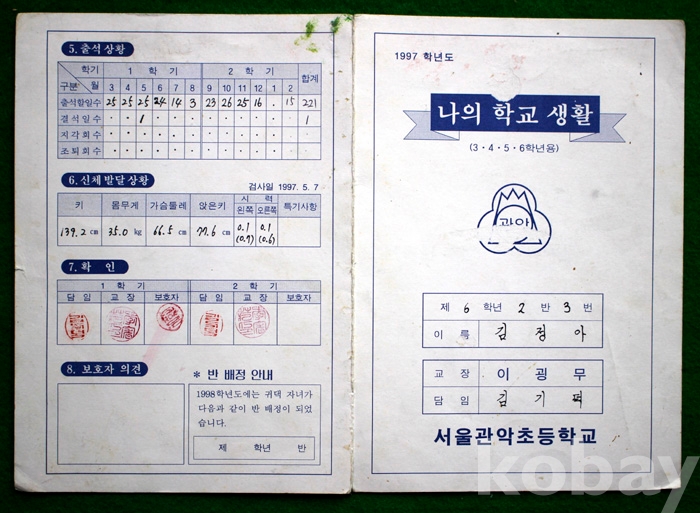 5. 출석 상황
학기 1 학 기 2 학 기 합계
구분 월 3 4 5 6 7 8 9 10 11 12 1 2
출석할일수 25 25 25 24 14 3 23 26 25 16 · 15 221
결석일수 · · 1 · · · · · · · · · 1
지각회수 · · · · · · · · · · · ·
조퇴회수 · · · · · · · · · · · ·
6. 신체 발달 상황
검사일 1997. 5. 7
키 몸무게 가슴둘레 앉은키 시 력 특기사항
왼쪽 오른쪽
139.2 cm 35.0 kg 66.5 cm 77.6 cm 0.1 0.1
(0.7) (0.6)
7. 확 인
1 학 기 2 학 기
담 임 교 장 보호자 담 임 교 장 보호자
8. 보호자 의견
* 반 배정 안내
1998학년도에는 귀댁 자녀가
다음과 같이 반 배정이 되었
습니다.
제 학년 반
1997 학년도
나의 학교 생활
(3·4·5·6학년용)
관악
제 6 학년 2 반 3 번
이 름 김 정 아
교 장 이 굉 무
담 임 김 기
서울관악초등학교
kobay